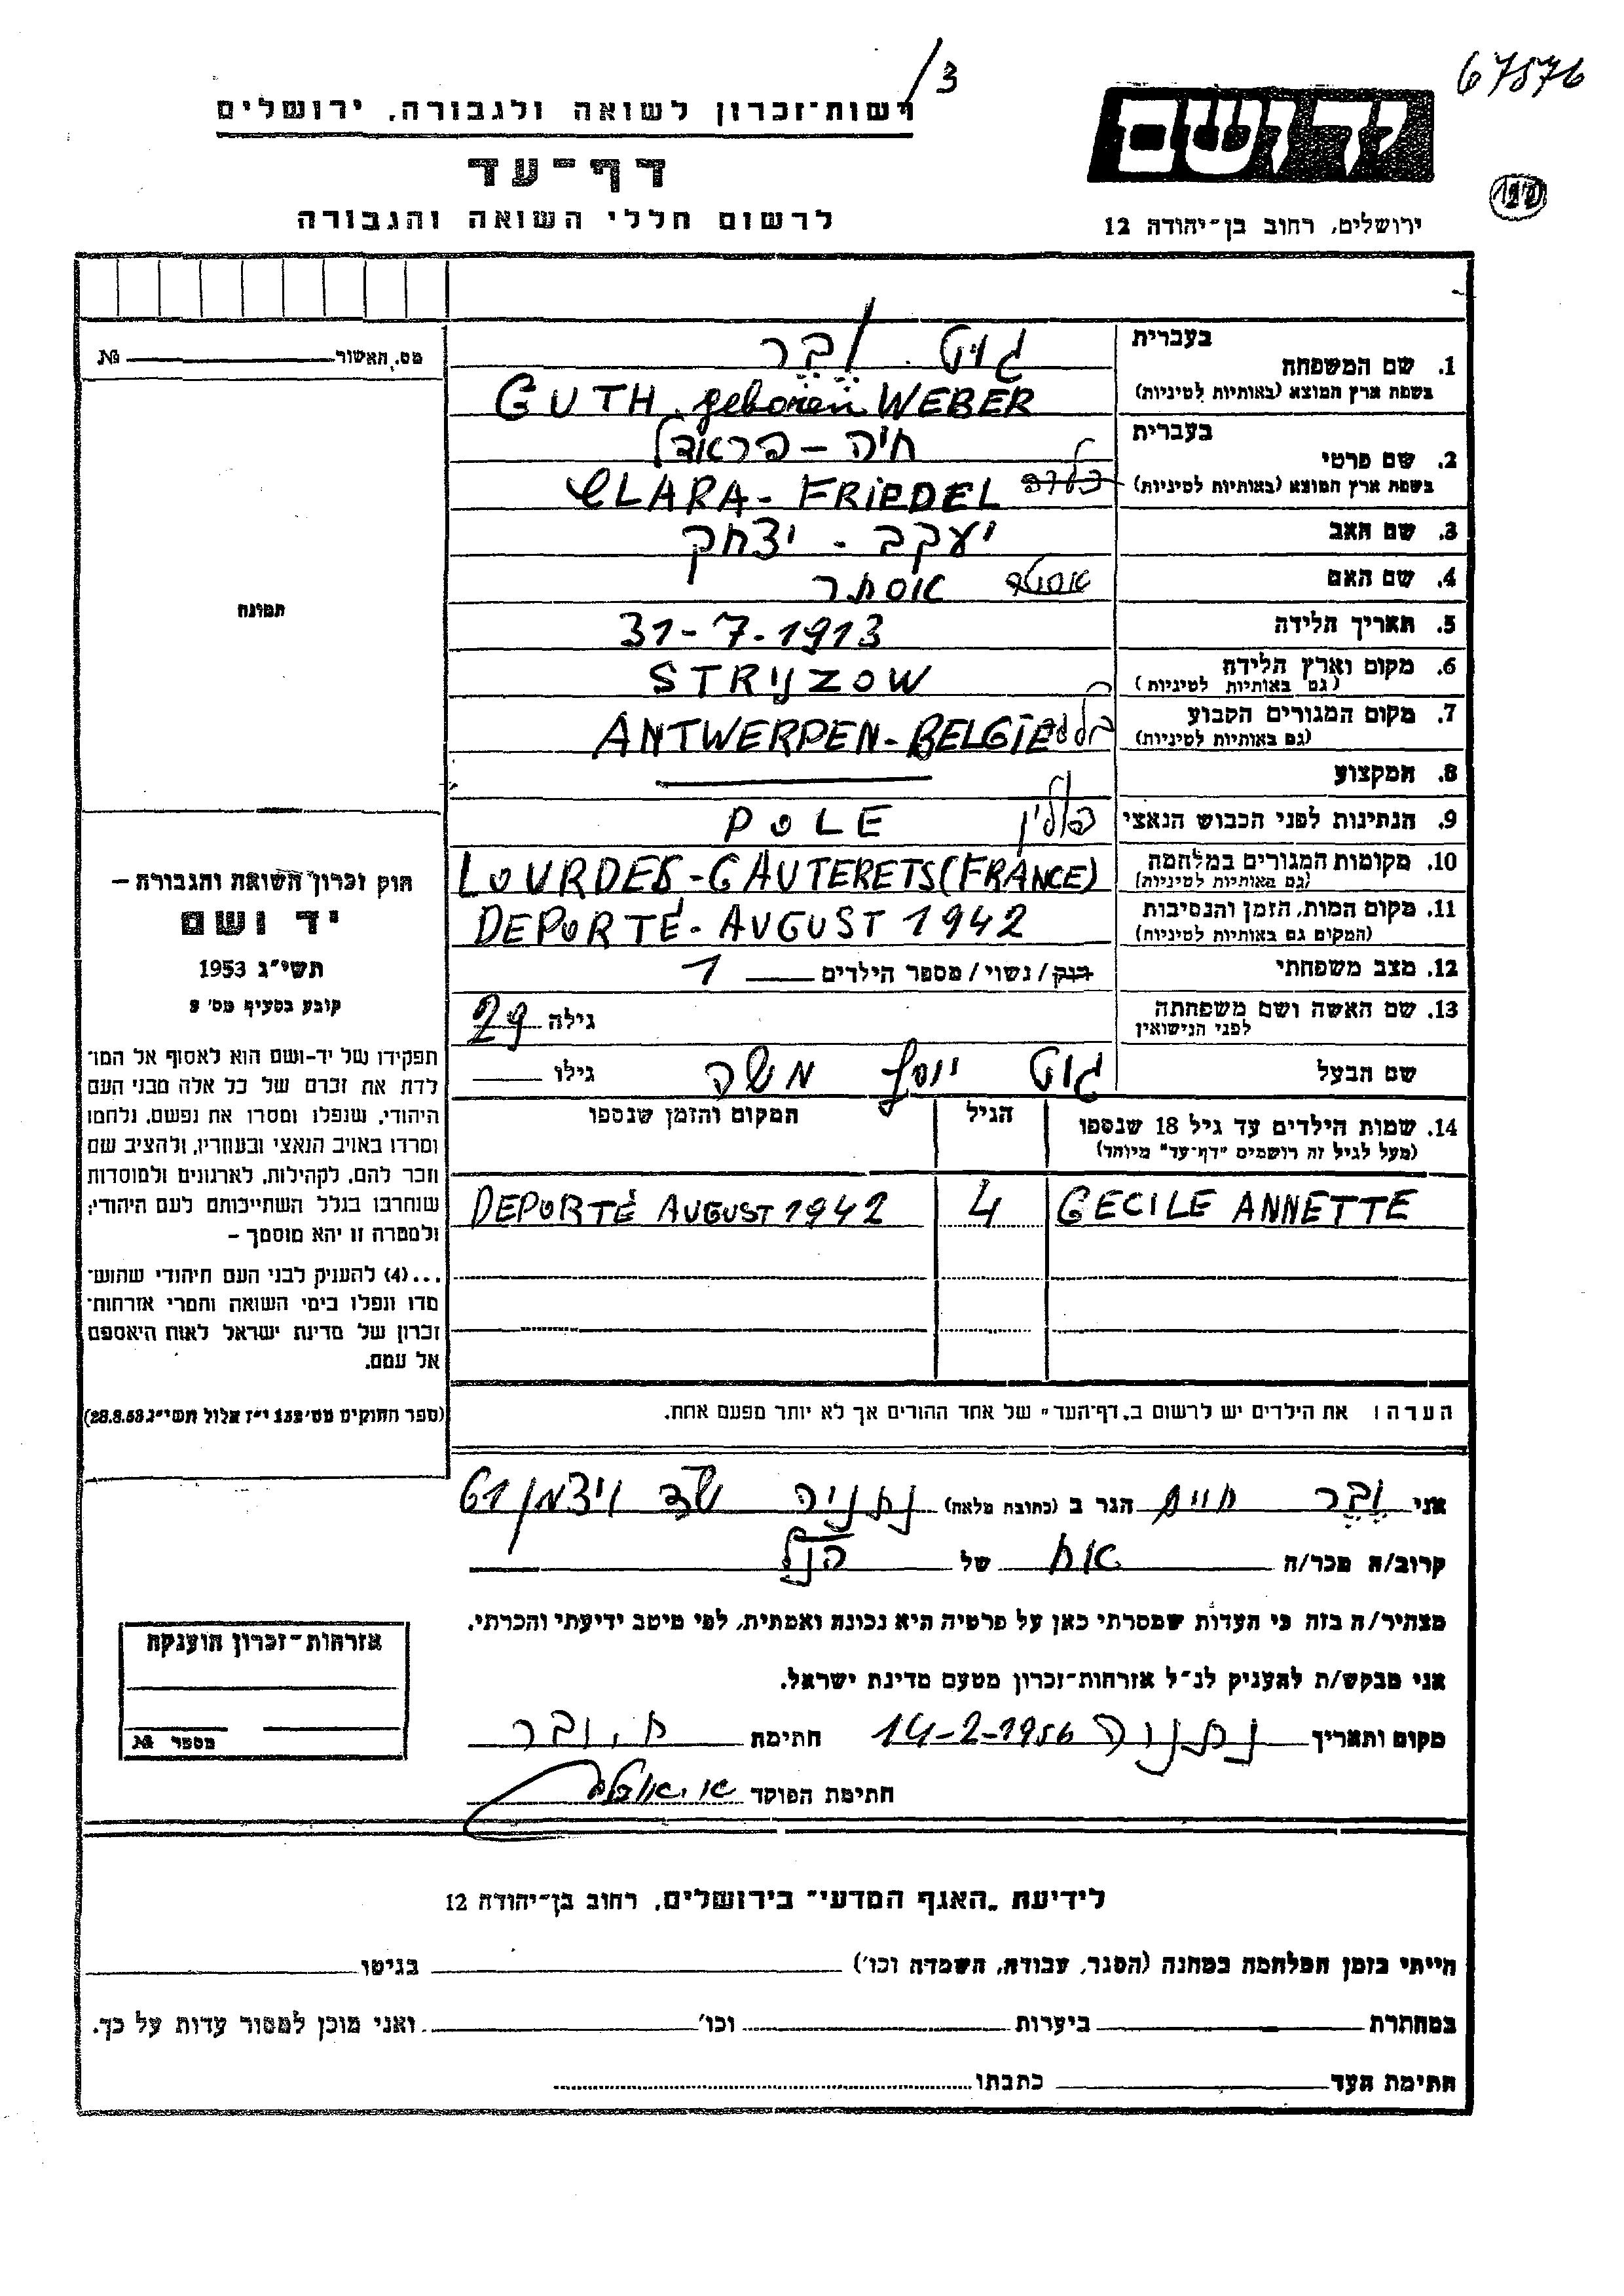 67576
/3
יד ושם
רשות־זכרון לשואה ולגבורה, ירושלים
דף־עד
לרשום חללי השואה והגבורה
ירושלים, רחוב בן־יהודה 12
מס. האשור № 
תמונה
בעברית
1. שם המשפחה
(בשפת ארץ המוצא (באותיות לטיניות
גוט. ובר
GUTH. geboren WEBER
בעברית
2. שם פרטי
(בשפת ארץ המוצא (באותיות לטיניות
חיה – פראדל
CLARA - FRIEDEL
3. שם האב
יעקב - יצחק
4. שם האם
אסתר
5. תאריך הלידה
31-7-1913
6. מקום וארץ הלידה
(גם באותיות לטיניות)
STRYZOW
7. מקום המגורים הקבוע
(גם באותיות לטיניות)
ANTWERPEN - BELGIË
8. המקצוע
9. הנתינות לפני הכבוש הנאצי
פולין POLE
10. מקומות המגורים במלחמה
(גם באותיות לטיניות)
LOURDES - CAUTERETS (FRANCE)
11. מקום המות, הזמן והנסיבות
(המקום גם באותיות לטיניות)
DEPORTÉ - AUGUST 1942
12. מצב משפחתי
רוק/נשוי/מספר הילדים 1
13. שם האשה ושם משפחתה
לפני הנישואין
גילה 29
שם הבעל גוט יוסף משה גילו
14. שמות הילדים עד גיל 18 שנספו
(מעל לגיל זה רושמים "דף־עד" מיוחד)
הגיל
המקום והזמן שנספו
CECILE ANNETTE 4 DEPORTÉ AUGUST 1942
הערה: את הילדים יש לרשום ב„דף־העד" של אחד ההורים אך לא יותר מפעם אחת.
חוק זכרון השואה והגבורה –
יד ושם
תשי"ג 1953
קובע בסעיף מס' 2
תפקידו של יד-ושם הוא לאסוף אל המו־
לדת את זכרם של כל אלה מבני העם
היהודי, שנפלו ומסרו את נפשם, נלחמו
ומרדו באויב הנאצי ובעוזריו, ולהציב שם
וזכר להם, לקהילות, לארגונים ולמוסדות
שנחרבו בגלל השתייכותם לעם היהודי;
ולמטרה זו יהא מוסמך –
...(4) להעניק לבני העם היהודי שהוש־
מדו ונפלו בימי השואה והמרי אזרחות־
זכרון של מדינת ישראל לאות היאספם
אל עמם.
(ספר החוקים מס' 132 י"ז אלול תשי"ג 28.8.53)
אני ובר חיים הגר ב (כתובת מלאה) נתניה שד ויצמן 61
קרוב/ה מכר/ה אח של הנ"ל
מצהיר/ה בזה כי העדות שמסרתי כאן על פרטיה היא נכונה ואמתית, לפי מיטב ידיעתי והכרתי.
אני מבקש/ת להעניק לנ"ל אזרחות־זכרון מטעם מדינת ישראל.
מקום ותאריך נתניה 14-2-1956 חתימת ח. ובר
חתימת הפוקד
אזרחות־זכרון הוענקה
מספר №
לידיעת „האגף המדעי" בירושלים, רחוב בן־יהודה 12
הייתי בזמן המלחמה במחנה (הסגר, עבודה, השמדה וכו') בגיטו
במחתרת ביערות וכו' ואני מוכן למסור עדות על כך.
חתימת העד כתבתו